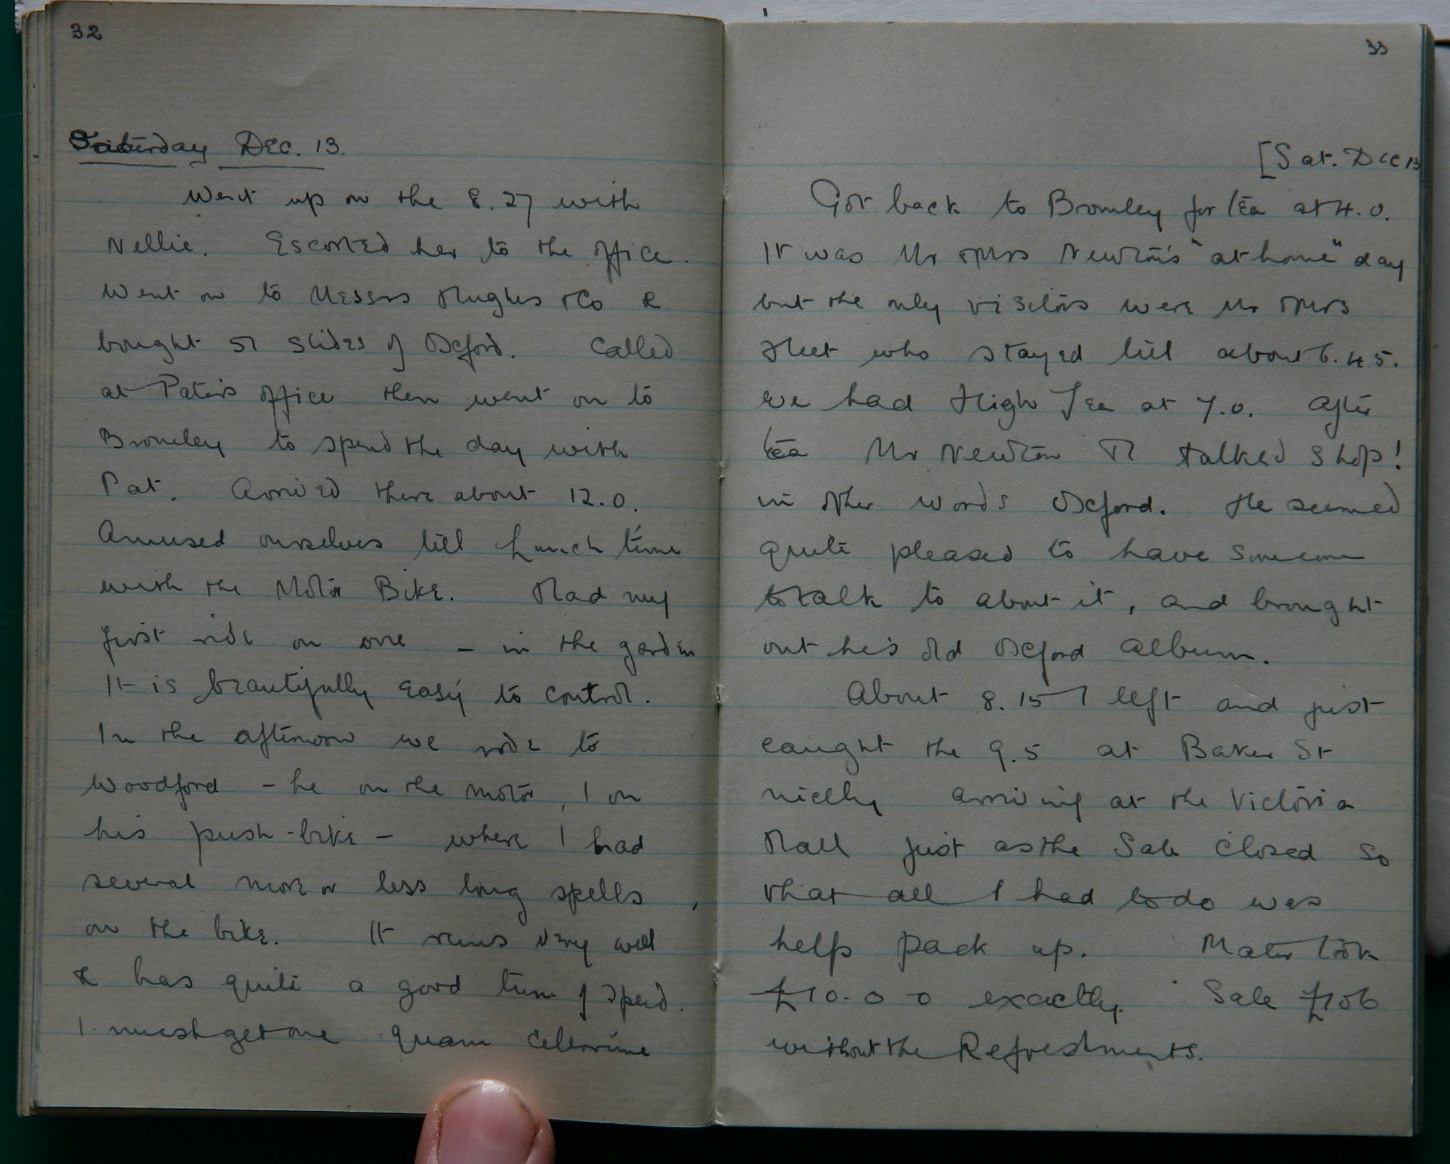 32
Saturday Dec. 13.
Went up on the 8.27 with
Nellie. Escorted her to the office.
Went on to Messrs Hughes & Co &
bought 51 slides of Oxford. Called
at Pater's office then went on to
Bromley to spend the day with
Pat. Arrived there about 12.0.
Amused ourselves till Lunch time
with the Motor Bike. Had my
first ride on one – in the garden
It is beautifully easy to control.
In the afternoon we rode to
Woodford – he on the motor, I on
his push-bike – where I had
several more or less long spells
on the bike. It runs very well
& has quite a good turn of speed.
I must get one quam celerrime
33
[Sat. Dec 13
Got back to Bromley for tea at 4.0.
It was Mr & Mrs Newton's "at home" day
but the only visitors were Mr & Mrs
Fleet who stayed till about 6.45.
We had High Tea at 7.0. After
tea Mr Newton & I talked shop!
in other words Oxford. He seemed
quite pleased to have someone
to talk to about it, and brought
out his old Oxford album.
About 8.15 I left and just
caught the 9.5 at Baker St
nicely arriving at the Victoria
Hall just as the Sale closed so
that all I had to do was
help pack up. Mater took
£10.0 0 exactly. Sale £106
without the Refreshments.